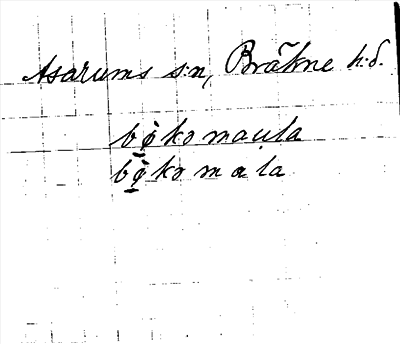 Asarums s:n, Bräkne h:d.
bø̀komau̯la
bø̀komala